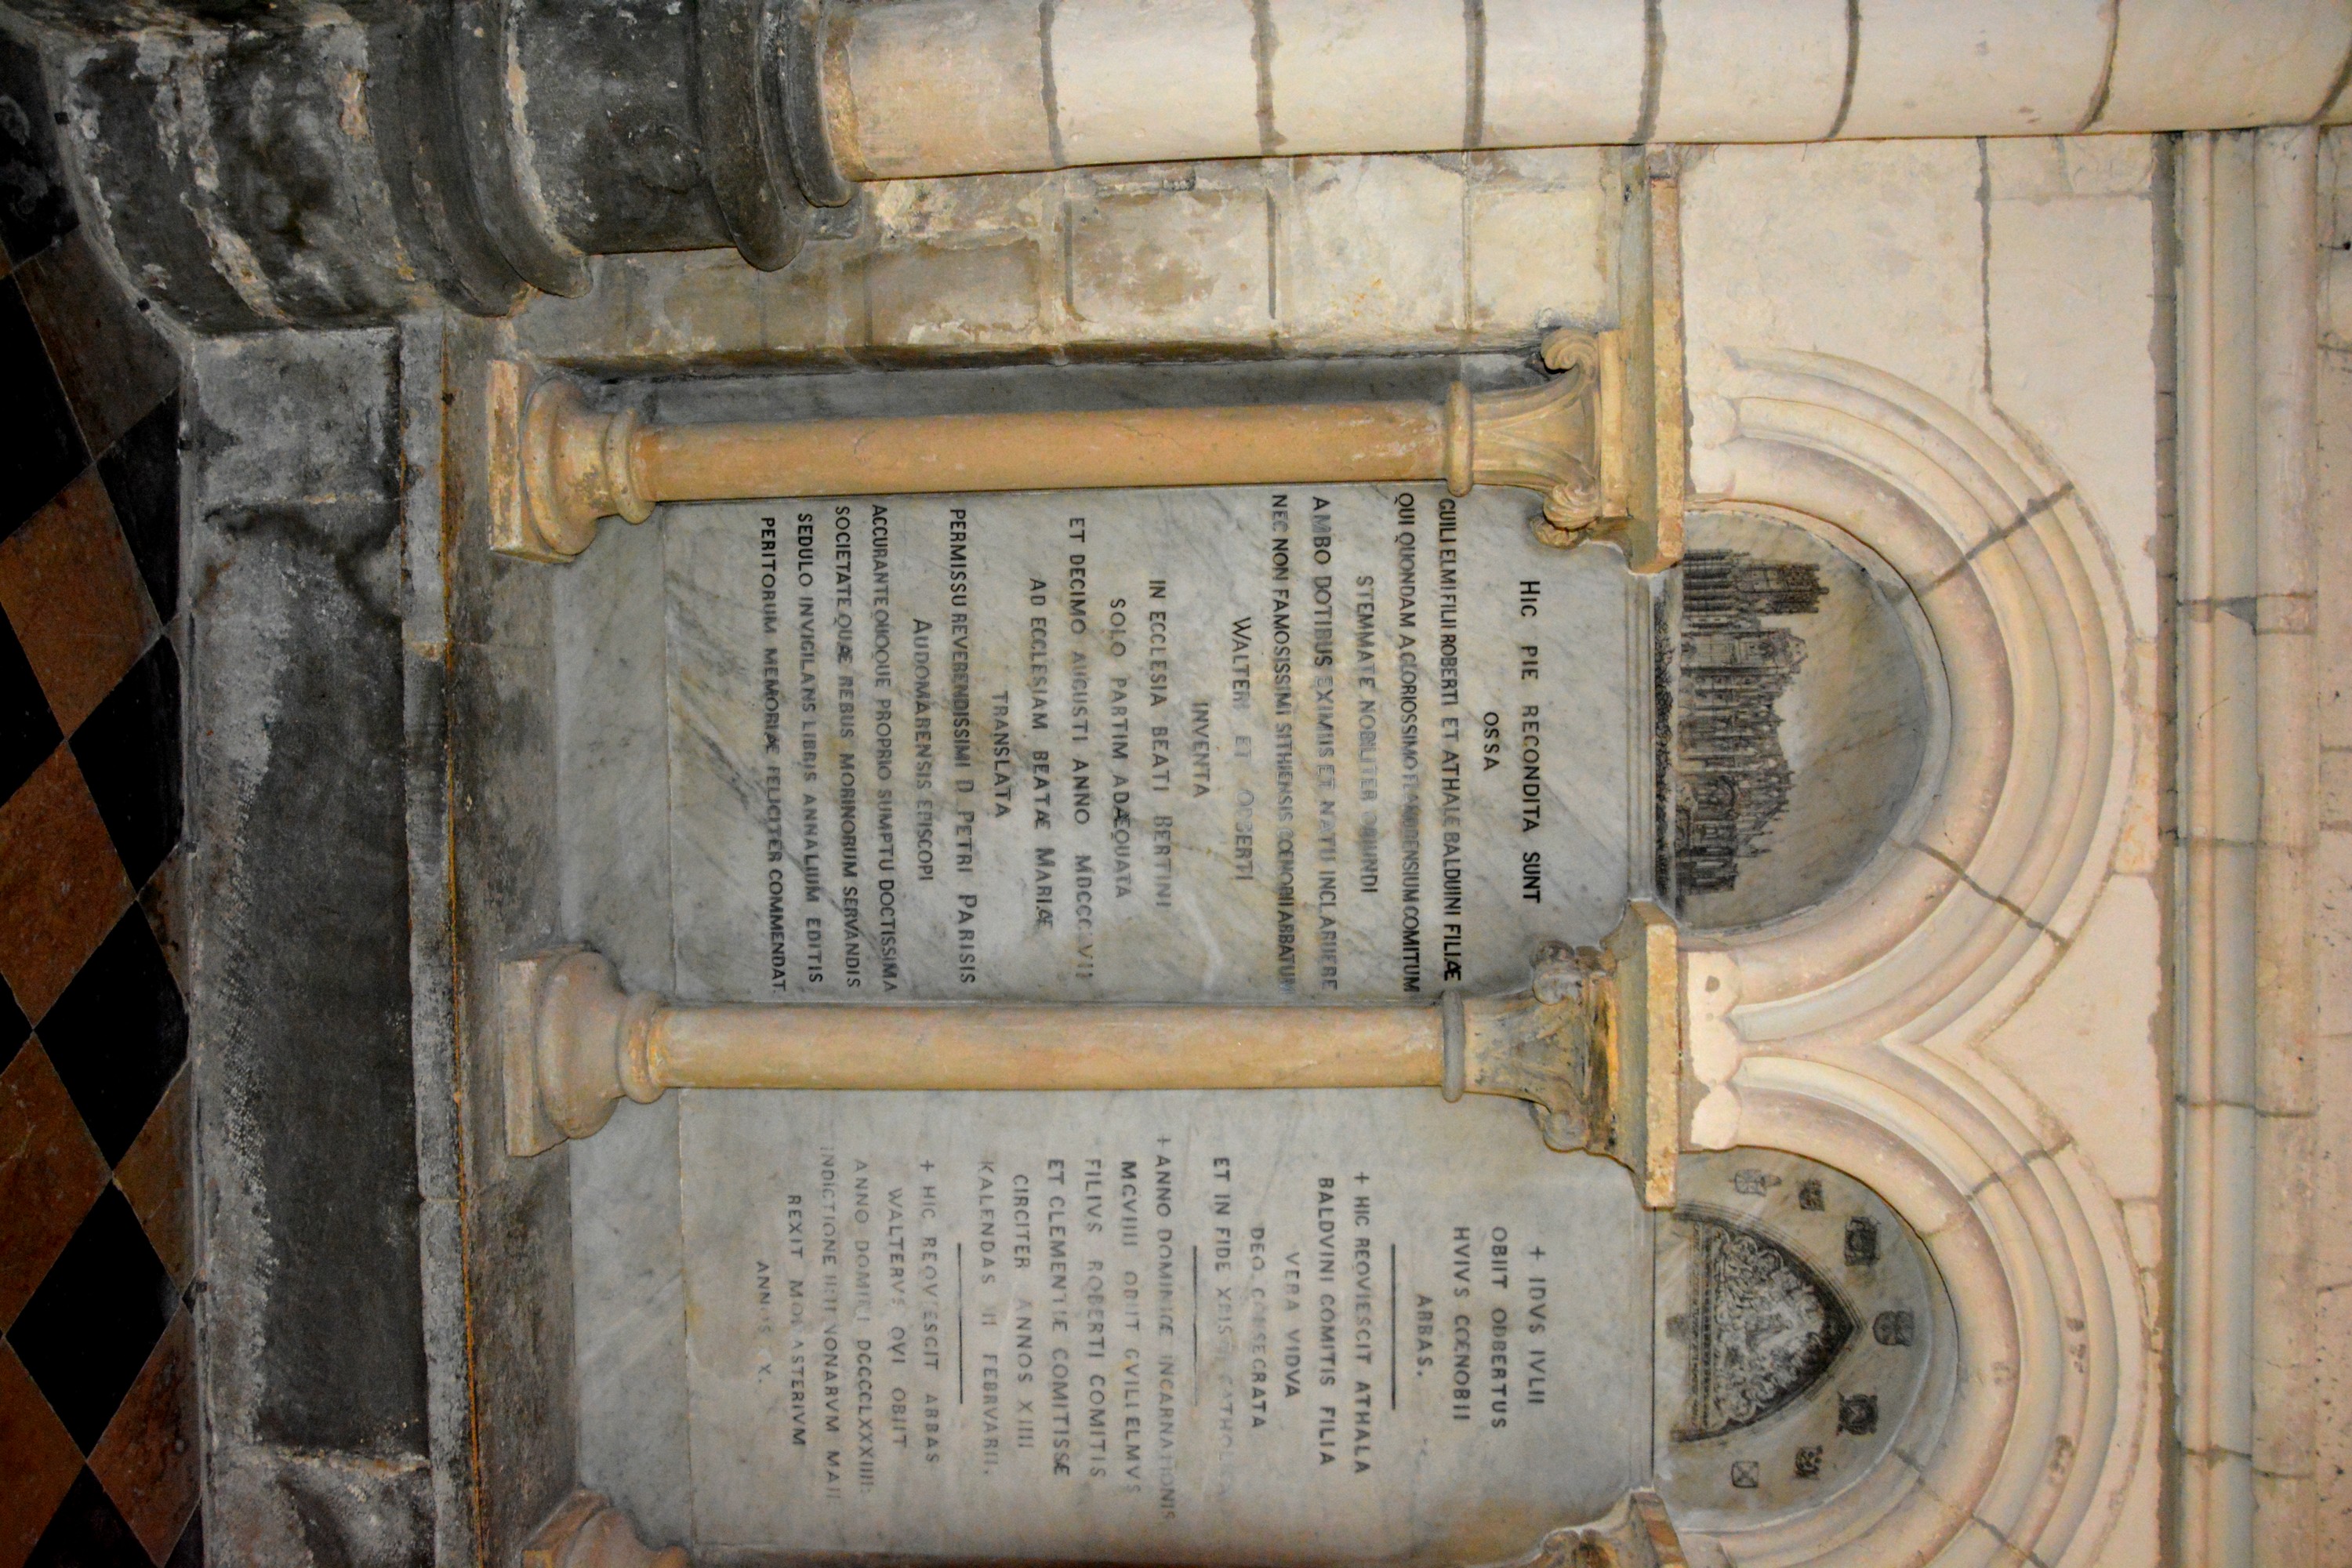 HIC PIE RECONDITA SUNT
OSSA
GUILIELMI FILII ROBERTI ET ATHALE BALDUINI FILIÆ
QUI QUONDAM A GLORIOSSIMO FLANDRENSIUM COMITUM
STEMMATE NOBILITER ORIUNDI
AMBO DOTIBUS EXIMIIS ET NATU INCLARUERE
NEC NON FAMOSISSIMI SITHIENSIS COENOBII ABBATUM
WALTERI ET ODBERTI
INVENTA
IN ECCLESIA BEATI BERTINI
SOLO PARTIM ADÆQUATA
ET DECIMO AUGUSTI ANNO
AD ECCLESIAM BEATÆ MARIÆ
TRANSLATA
PERMISSU REVERENDISSIMI D PETRI PARISIS
AUDOMARENSIS EPISCOPI
ACCURANTE QUOQUE PROPRIO SUMPTU DOCTISSIMA
SOCIETATE QUÆ REBUS MORINORUM SERVANDIS
SEDULO INVIGILANS LIBRIS ANNALIUM EDITIS
PERITORUM MEMORIÆ FELICITER COMMENDAT.
+ IDVS IVLII
OBIIT ODBERTUS
HVIVS COENOBII
ABBAS.
+ HIC REQVIESCIT ATHALA
BALDVINI COMITIS FILIA
VERA VIDVA
DEO CONSECRATA
ET IN FIDE XPISTI CATHOLICA
+ ANNO DOMINICÆ INCARNATIONIS
MCVIIII OBIIT GVILLELMVS
FILIVS ROBERTI COMITIS
ET CLEMENTIÆ COMITISSÆ
CIRCITER ANNOS XIIII
KALENDAS FEBRVARII.
+ HIC REQVIESCIT ABBAS
WALTERVS QVI OBIIT
ANNO DOMINI DCCCCLXXXIIII.
INDICTIONE NONARVM MAII
REXIT MONASTERIVM
ANNIS